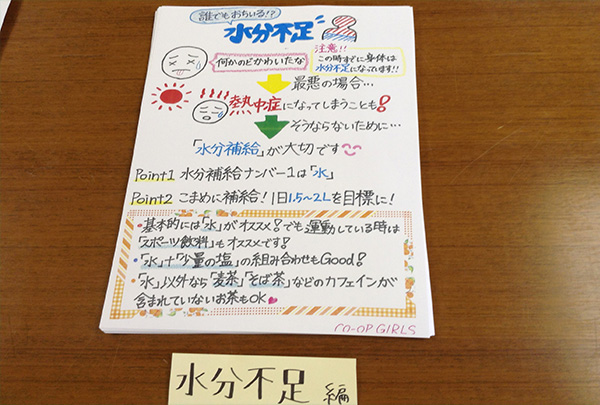 誰でもおちいる!?
水分不足
何かのどかわいたな
注意!!
この時すでに身体は
水分不足になっています!!
最悪の場合…
熱中症になってしまうことも!
そうならないために…
「水分補給」が大切です
Point1 水分補給ナンバー1は「水」
Point2 こまめに補給!1日1.5~2Lを目標に!
・基本的には「水」がオススメ!でも運動している時は
「スポーツ飲料」もオススメです!
・「水」+「少量の塩」の組み合わせもGood!
・「水」以外なら「麦茶」「そば茶」などのカフェインが
含まれていないお茶もOK
CO-OP GIRLS
水分不足 編